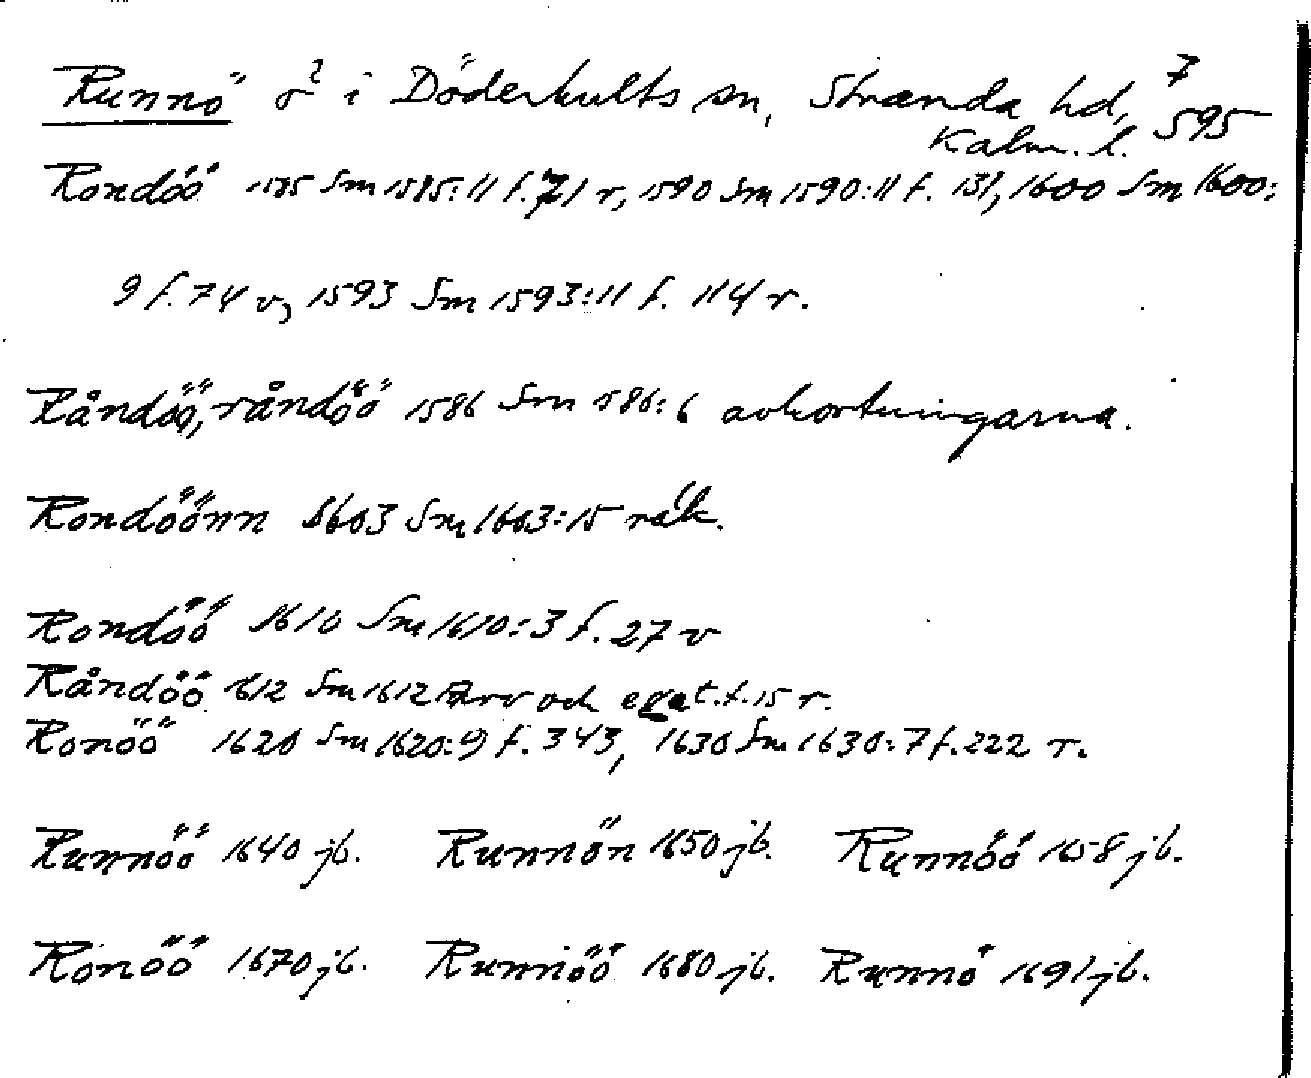 Runnö ö? i Döderhults sn, Stranda hd, 7
Kalm. l. 595
Rondöö 1585 Sm 1585:11 f. 71 r, 1590 Sm 1590:11 f. 131, 1600 Sm 1600:
9 f. 74 v, 1593 Sm 1593:11 f. 114 r.
Råndöö, råndöö 1586 Sm 1586:6 avkortningarna.
Rondöönn 1603 Sm 1603:15 räk.
Rondöö 1610 Sm 1610:3 f. 27 v
Råndöö 1612 Sm 1612 arv och eget. f. 15 r.
Ronöö 1620 Sm 1620:9 f. 343, 1630 Sm 1630:7 f. 222 r.
Runnöö 1640 jb. Runnön 1650 jb. Runnöö 1658 jb.
Ronöö 1670 jb. Runnöö 1680 jb. Runnö 1691 jb.